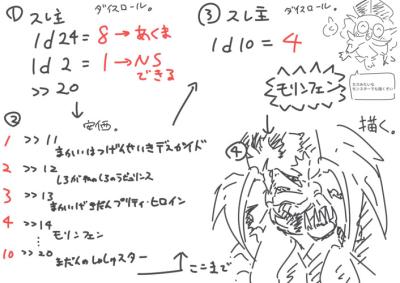 ① スレ主 ダイスロール。
1d24=8→あくま
1d2=1→NS
できる
>>20
↓安価。
②
1 >>11
まかいはつげんせいきデスガイド
2 >>12
しろがねのしろのラビュリンス
3 >>13
まかいげきだんプリティ・ヒロイン
4 >>14
モリンフェン
⋮
10 >>20
まだんのしゅしゃスター
ここまで
③ スレ主 ダイスロール。
1d10=4
モリンフェン
④ 描く。